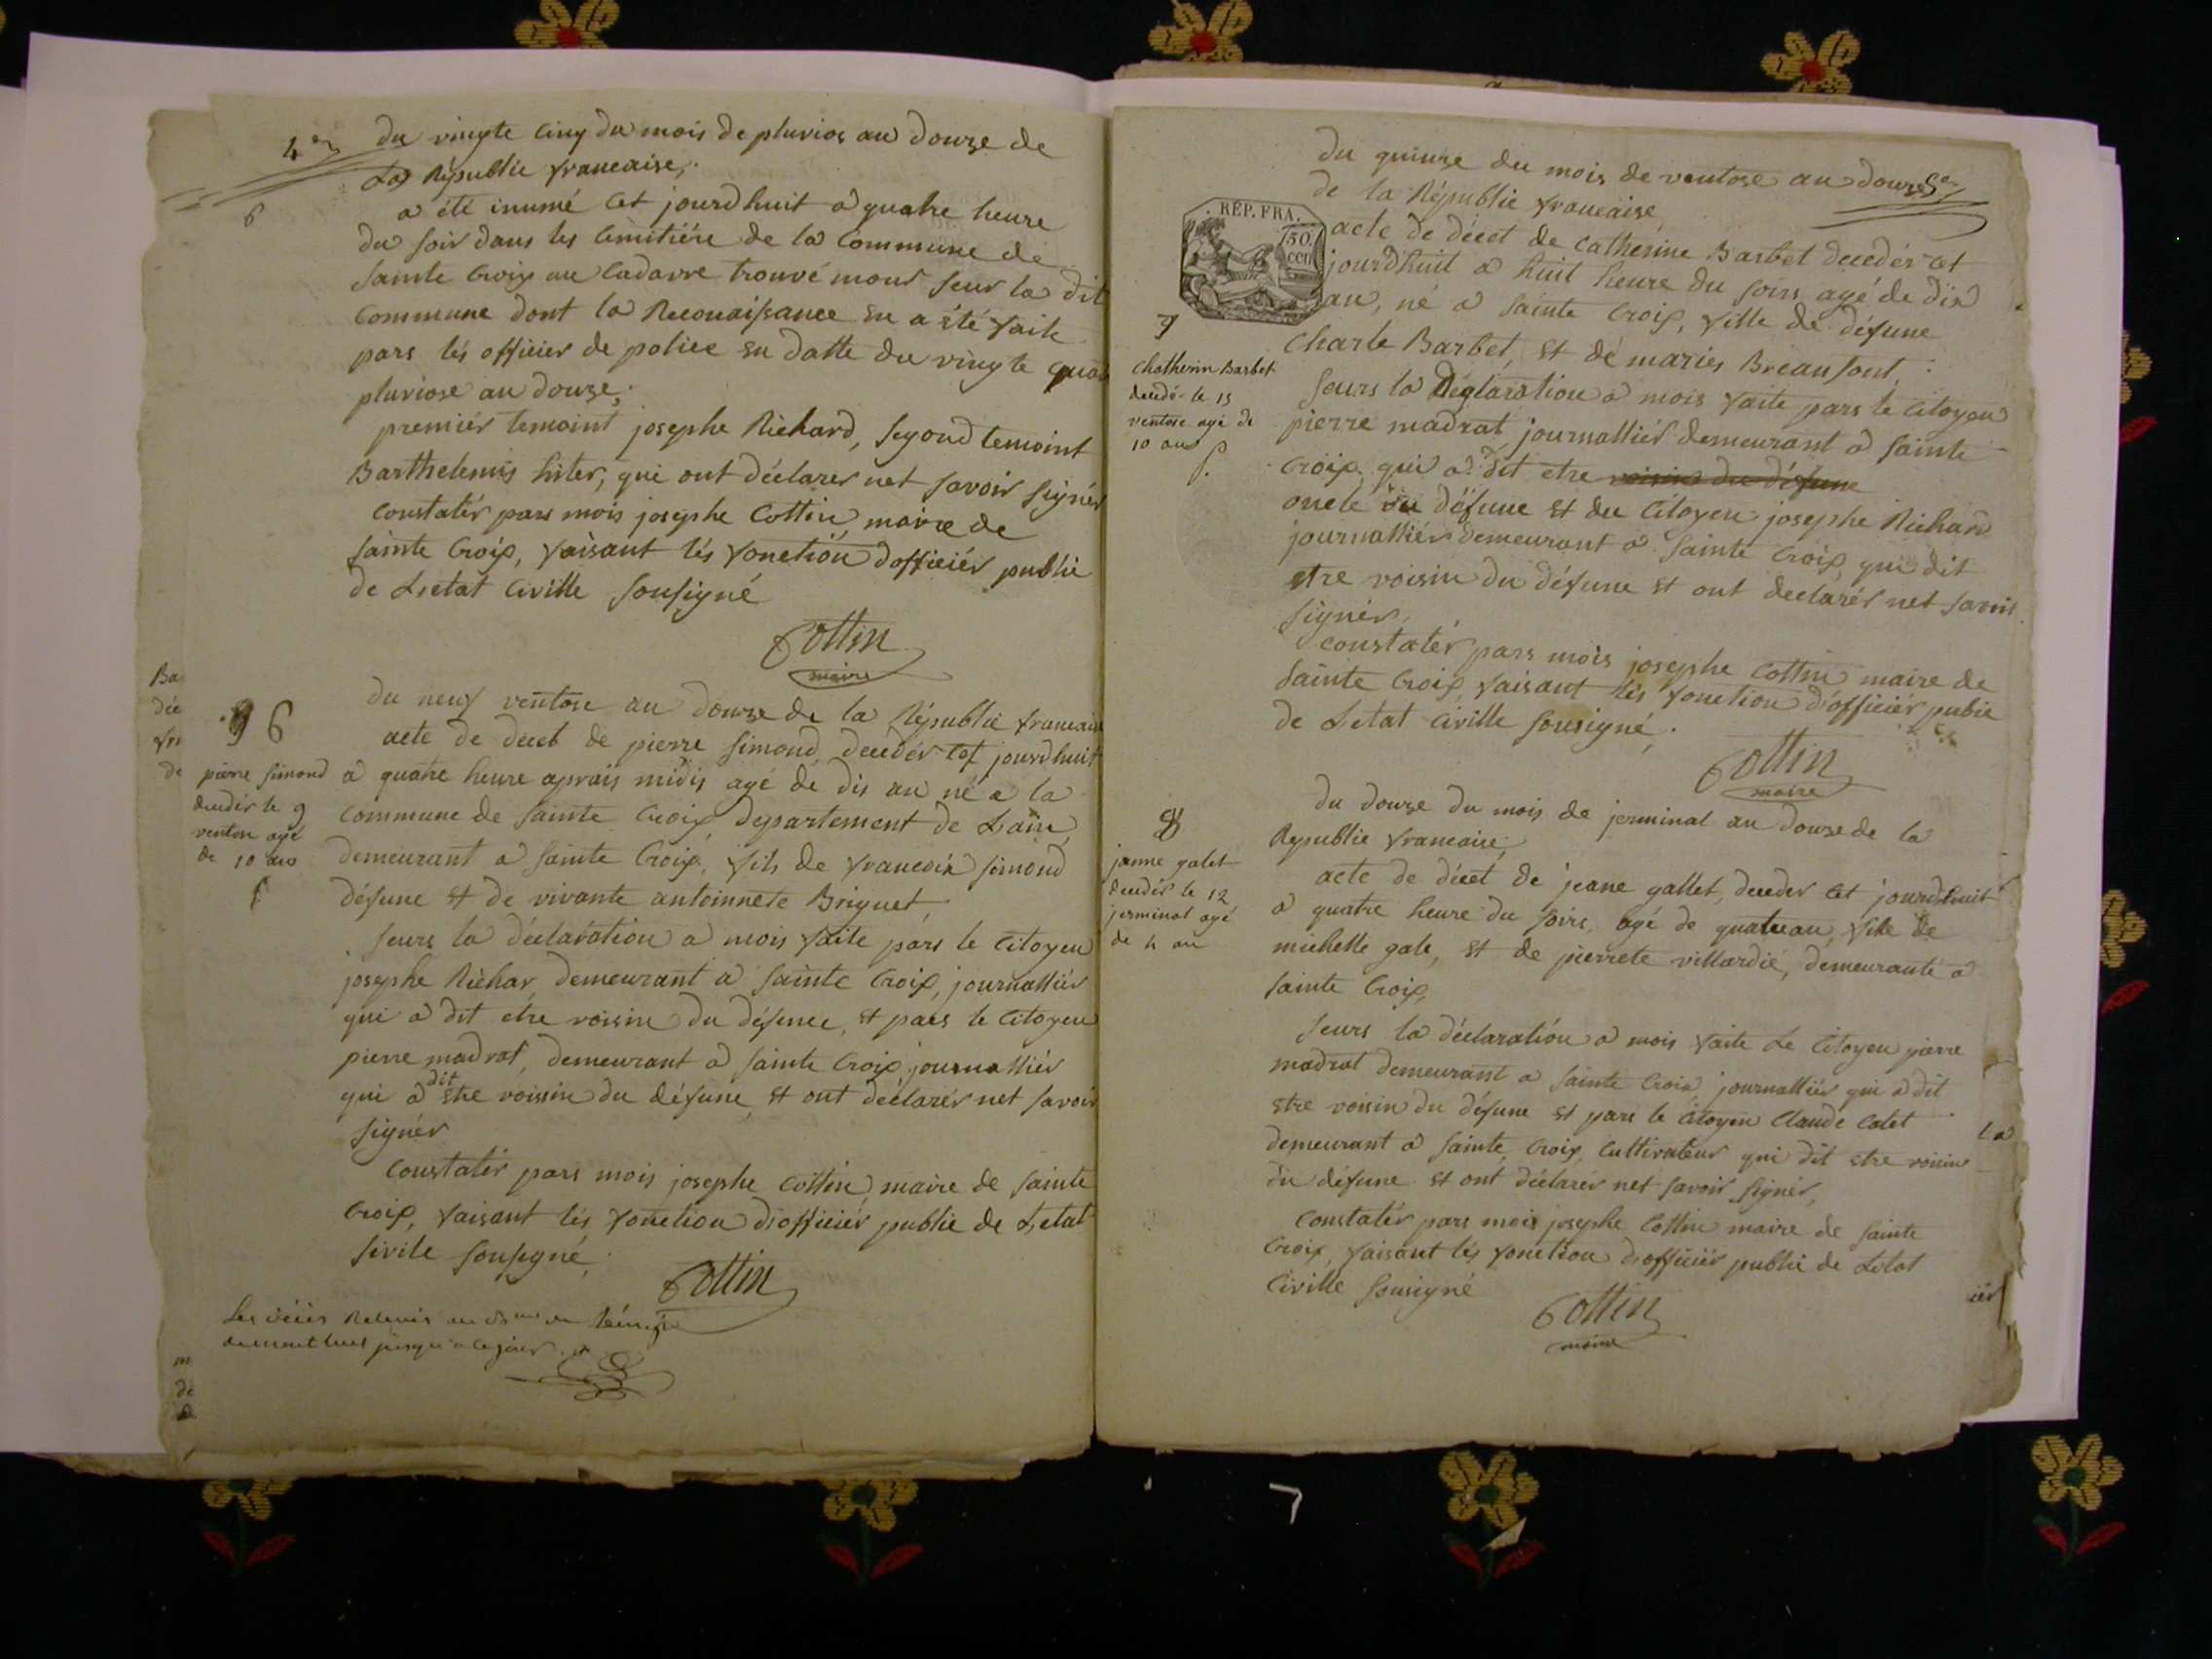 4er
du vingte cinq du mois de pluvios an douze de
La Républic francaise,
6
a été inumé Cet jourdhuit a quatre heure
du soir dans les Cimitiére de la commune de
sainte Croix un Cadavre trouvé mour seur la dit
commune dont la Reconaissance en a été faite
pars lés officier de police en datte du vingte quat
pluviose an douze,
premiér temoint josephe Richard, segond temoint
Barthelemis hiter, qui ont déclarer net savoir signér
Constatér pars mois josephe Cottin maire de
sainte Croix, faisant lés fonction dofficiér public
de Letat Civille sousigné
Cottin
maire
Ba
dée
de
96
pierre simond
decedér le 9
ventose agé
de 10 ans
du neuf ventose an douze de la Républic francais
acte de decet de pierre simond decedér Cet jourdhuit
a quatre heure aprais midis agé de dis an né a la
Commune de sainte Croix departement de Lain
demeurant a sainte Croix, fils de francois simond
défune et de vivante antoinnete Briguet,
seurs la déclaration a mois faite pars le Citoyen
josephe Richar demeurant a sainte Croix, journalliér
qui a dit etre voisin du défune, et pars le Citoyen
pierre madrat, demeurant a sainte Croix journalliér
qui a dit etre voisin du défune et ont declarér net savoir
signér
Constatér pars mois josephe Cottin maire de sainte
Croix, faisant lés fonction dofficiér public de Letat
sivile sousigné,
Cottin
jusqu a ce jour
REP. FRA.
50
cen
du quinze du mois de ventose an douze 5er
de la Républic francaise
acte de décet de Catherine Barbet decedér Cet
jourdhuit a huit heure du soirs agé de dis
an, né a sainte Croix, fille de défune
Charle Barbet, et dé maries Breansont,
7
Chatherin Barbet
decedér le 15
ventose agé de
10 ans
seurs la déclaration a mois faite pars le Citoyen
pierre madrat journalliér demeurant a sainte
Croix qui a dit etre voisin du défune
oncle du défune et du Citoyen josephe Richard
journalliér demeurant a sainte Croix, qui dit
etre voisin du défune et ont declarér net savoir
signér,
constatér pars mois josephe Cottin maire de
sainte Croix faisant lés fonction dofficiér pubic
de Letat Civille sousigné,
Cottin
maire
8
janne galet
decedér le 12
jerminal agé
de 4 an
du douze du mois de jerminal an douze de la
Republic francaise,
acte de décet de jeane gallet, deceder Cet jourdhuit
a quatre heure du soirs, agé de quatre an, fille de
michelle gale, et de pierrete villardié, demeurante a
sainte Croix,
seurs la déclaration a mois faite Le Citoyen pierre
madrat demeurant a sainte Croix journalliér qui a dit
etre voisin du défune et pars le Citoyen Claude Calet
demeurant a sainte Croix, Cultivateur qui dit etre voisin
du défune et ont déclarér net savoir signér,
Constatér pars mois josephe Cottin maire de sainte
Croix, faisant lés fonction dofficiér public de Letat
Civille sousigné
Cottin
maire
La
iér